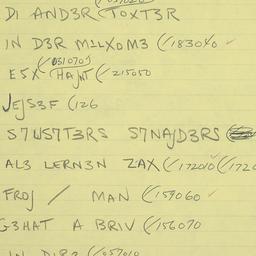 DI AND3R TOXT3R
IN D3R M1LXOM3 (/183040
(/051070)
E5X HAJNT (/215050
JEJS3F (126
S7WS7T3RS S7NAJD3RS
AL3 LERN3N ZAX (/172010 (/1720
FROJ / MAN (/159060
G3HAT A BRIV (/156070
(/057010